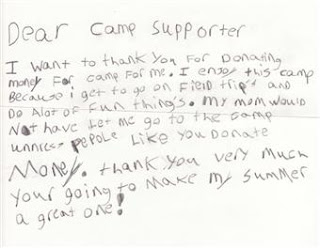 Dear Camp Supporter
I want to thank you For Donating
money For camp For me. I enjoy this camp
Because i get to go on Field trip's and
Do Alot of Fun thing's. my mom would
Not have Let me go to the camp
unnless pepole Like you Donate
Money. thank you very much
your going to make my summer
a great one!